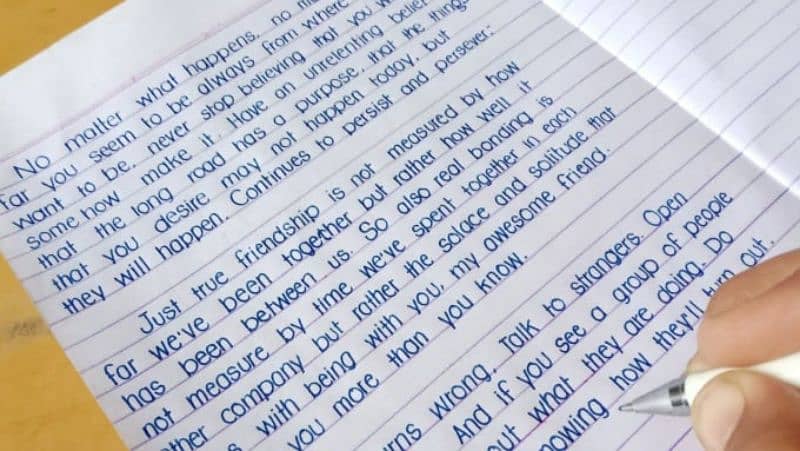 No matter what happens, no
far you seem to be always from where
want to be, never stop believing that you
some how make it. Have an unrelenting belief
that the long road has a purpose, that the things
that you desire may not happen today, but
they will happen. Continues to persist and persever.
Just true friendship is not measured by how
far we've been together but rather how well it
has been between us. So also real bonding is
not measure by time we've spent together in each
other company but rather the solace and solitude that
with being with you, my awesome friend.
you more than you know.
wrong. Talk to strangers. Open
And if you see a group of people
what they are doing. Do
how they'll turn out.